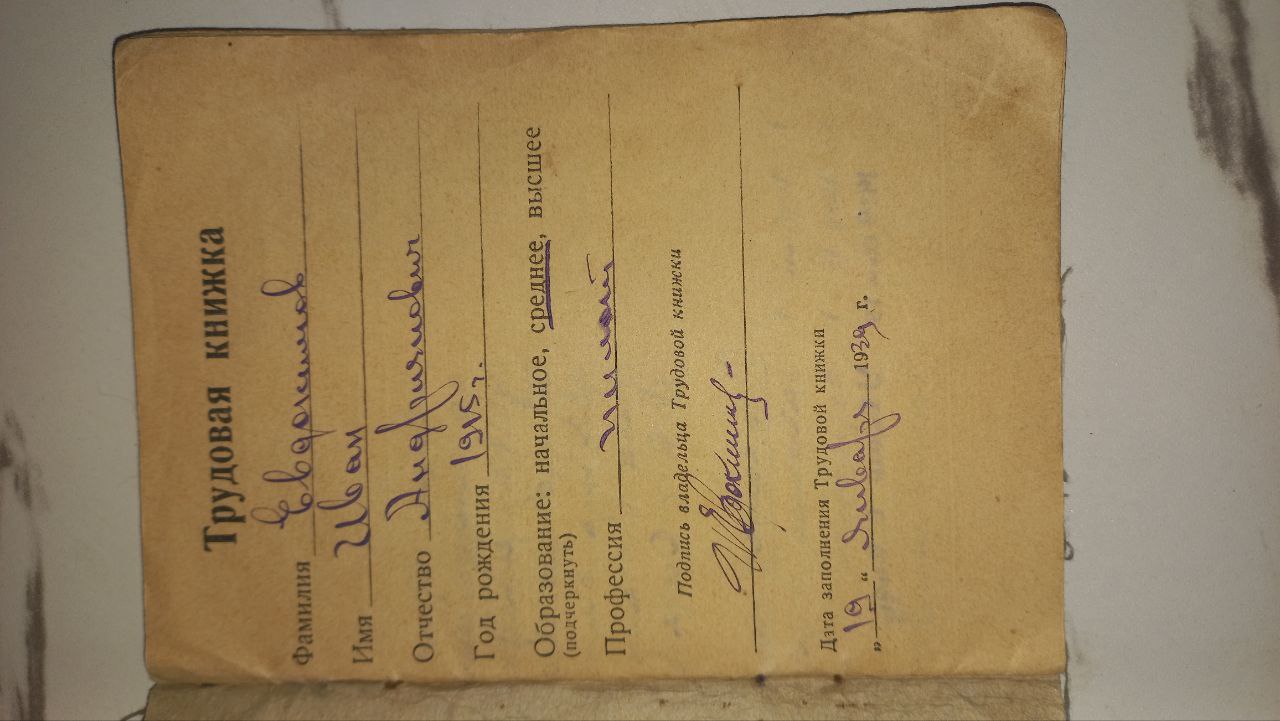 Трудовая книжка
Фамилия Евдокимов
Имя Иван
Отчество Андриянович
Год рождения 1915 г.
Образование: начальное, среднее, высшее
(подчеркнуть)
Профессия
Подпись владельца Трудовой книжки
Дата заполнения Трудовой книжки
„19“ января 1939 г.